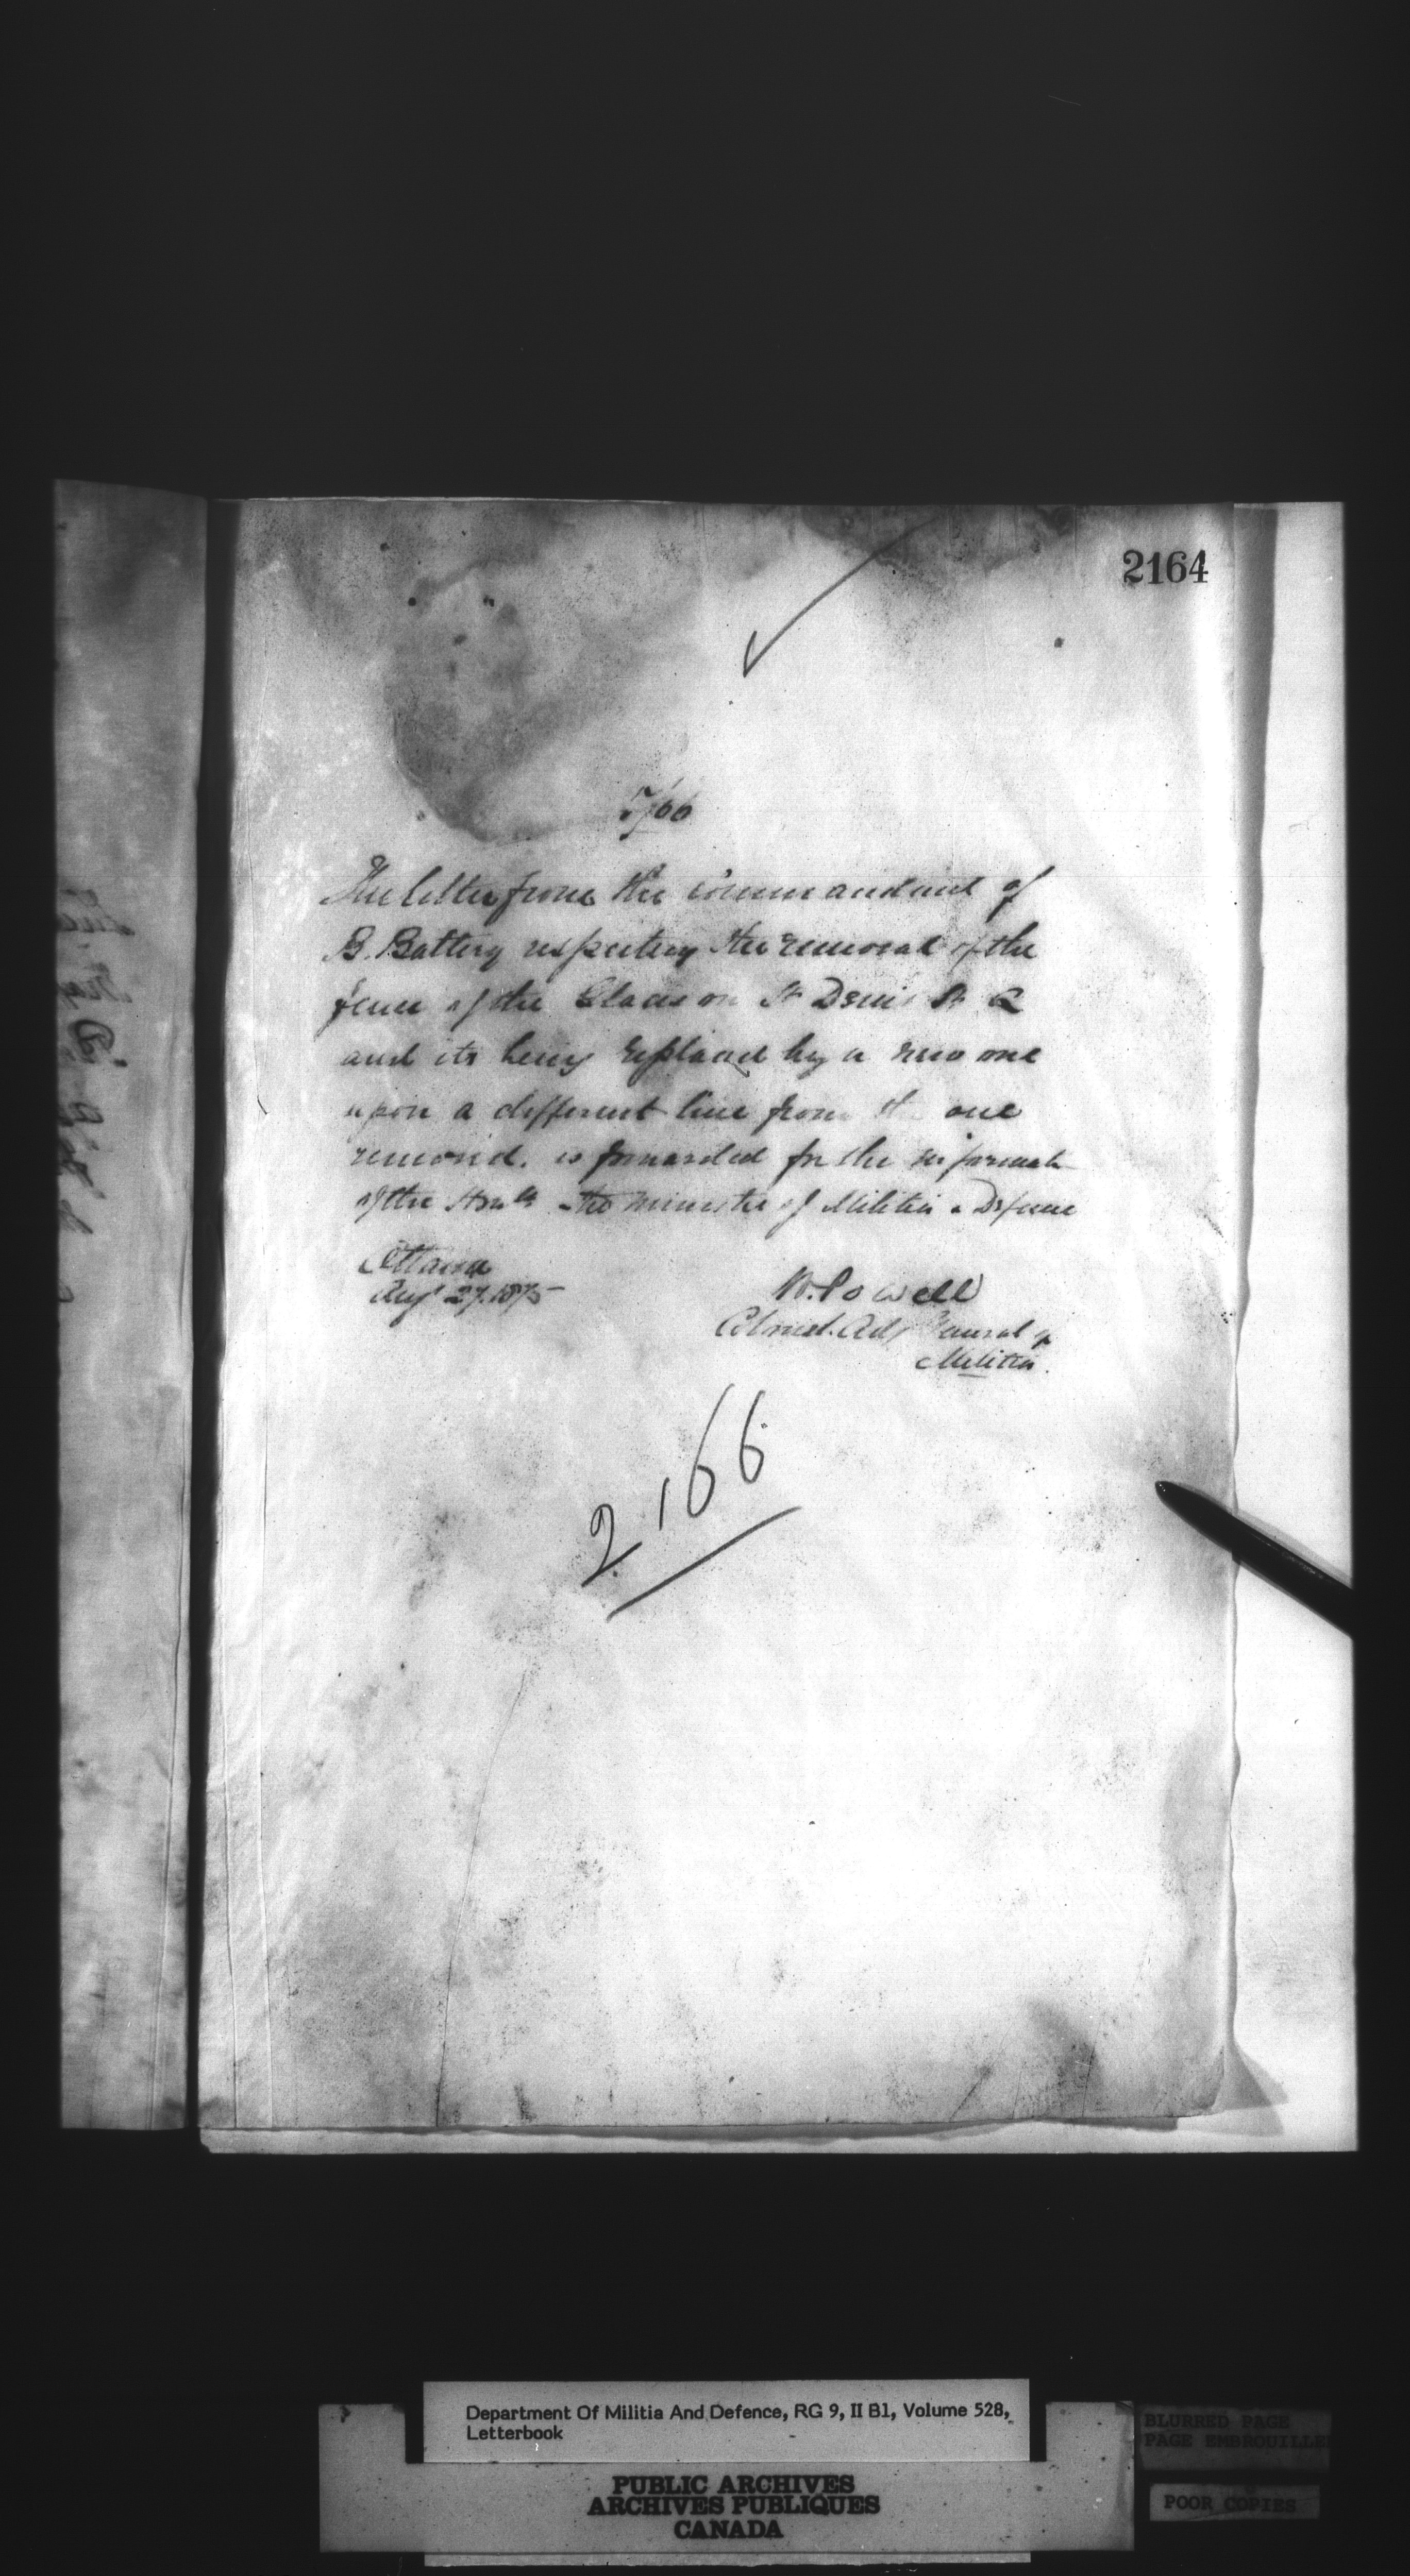 2164
7166
The letter from the commandant of
B. Battery respecting the removal of the
fence of the Glacis on St Denis St Q
and its being replaced by a new one
upon a different line from th one
removed. is forwarded for the informatn
of the Honble the Minister of Militia & Defence
Ottawa
Augt 27. 1875
W. Powell
Colonel. Adj General of
Militia.
2166
Department Of Militia And Defence, RG 9, II B1, Volume 528,
Letterbook
PUBLIC ARCHIVES
ARCHIVES PUBLIQUES
CANADA
BLURRED PAGE
PAGE EMBROUILLE
POOR COPIES